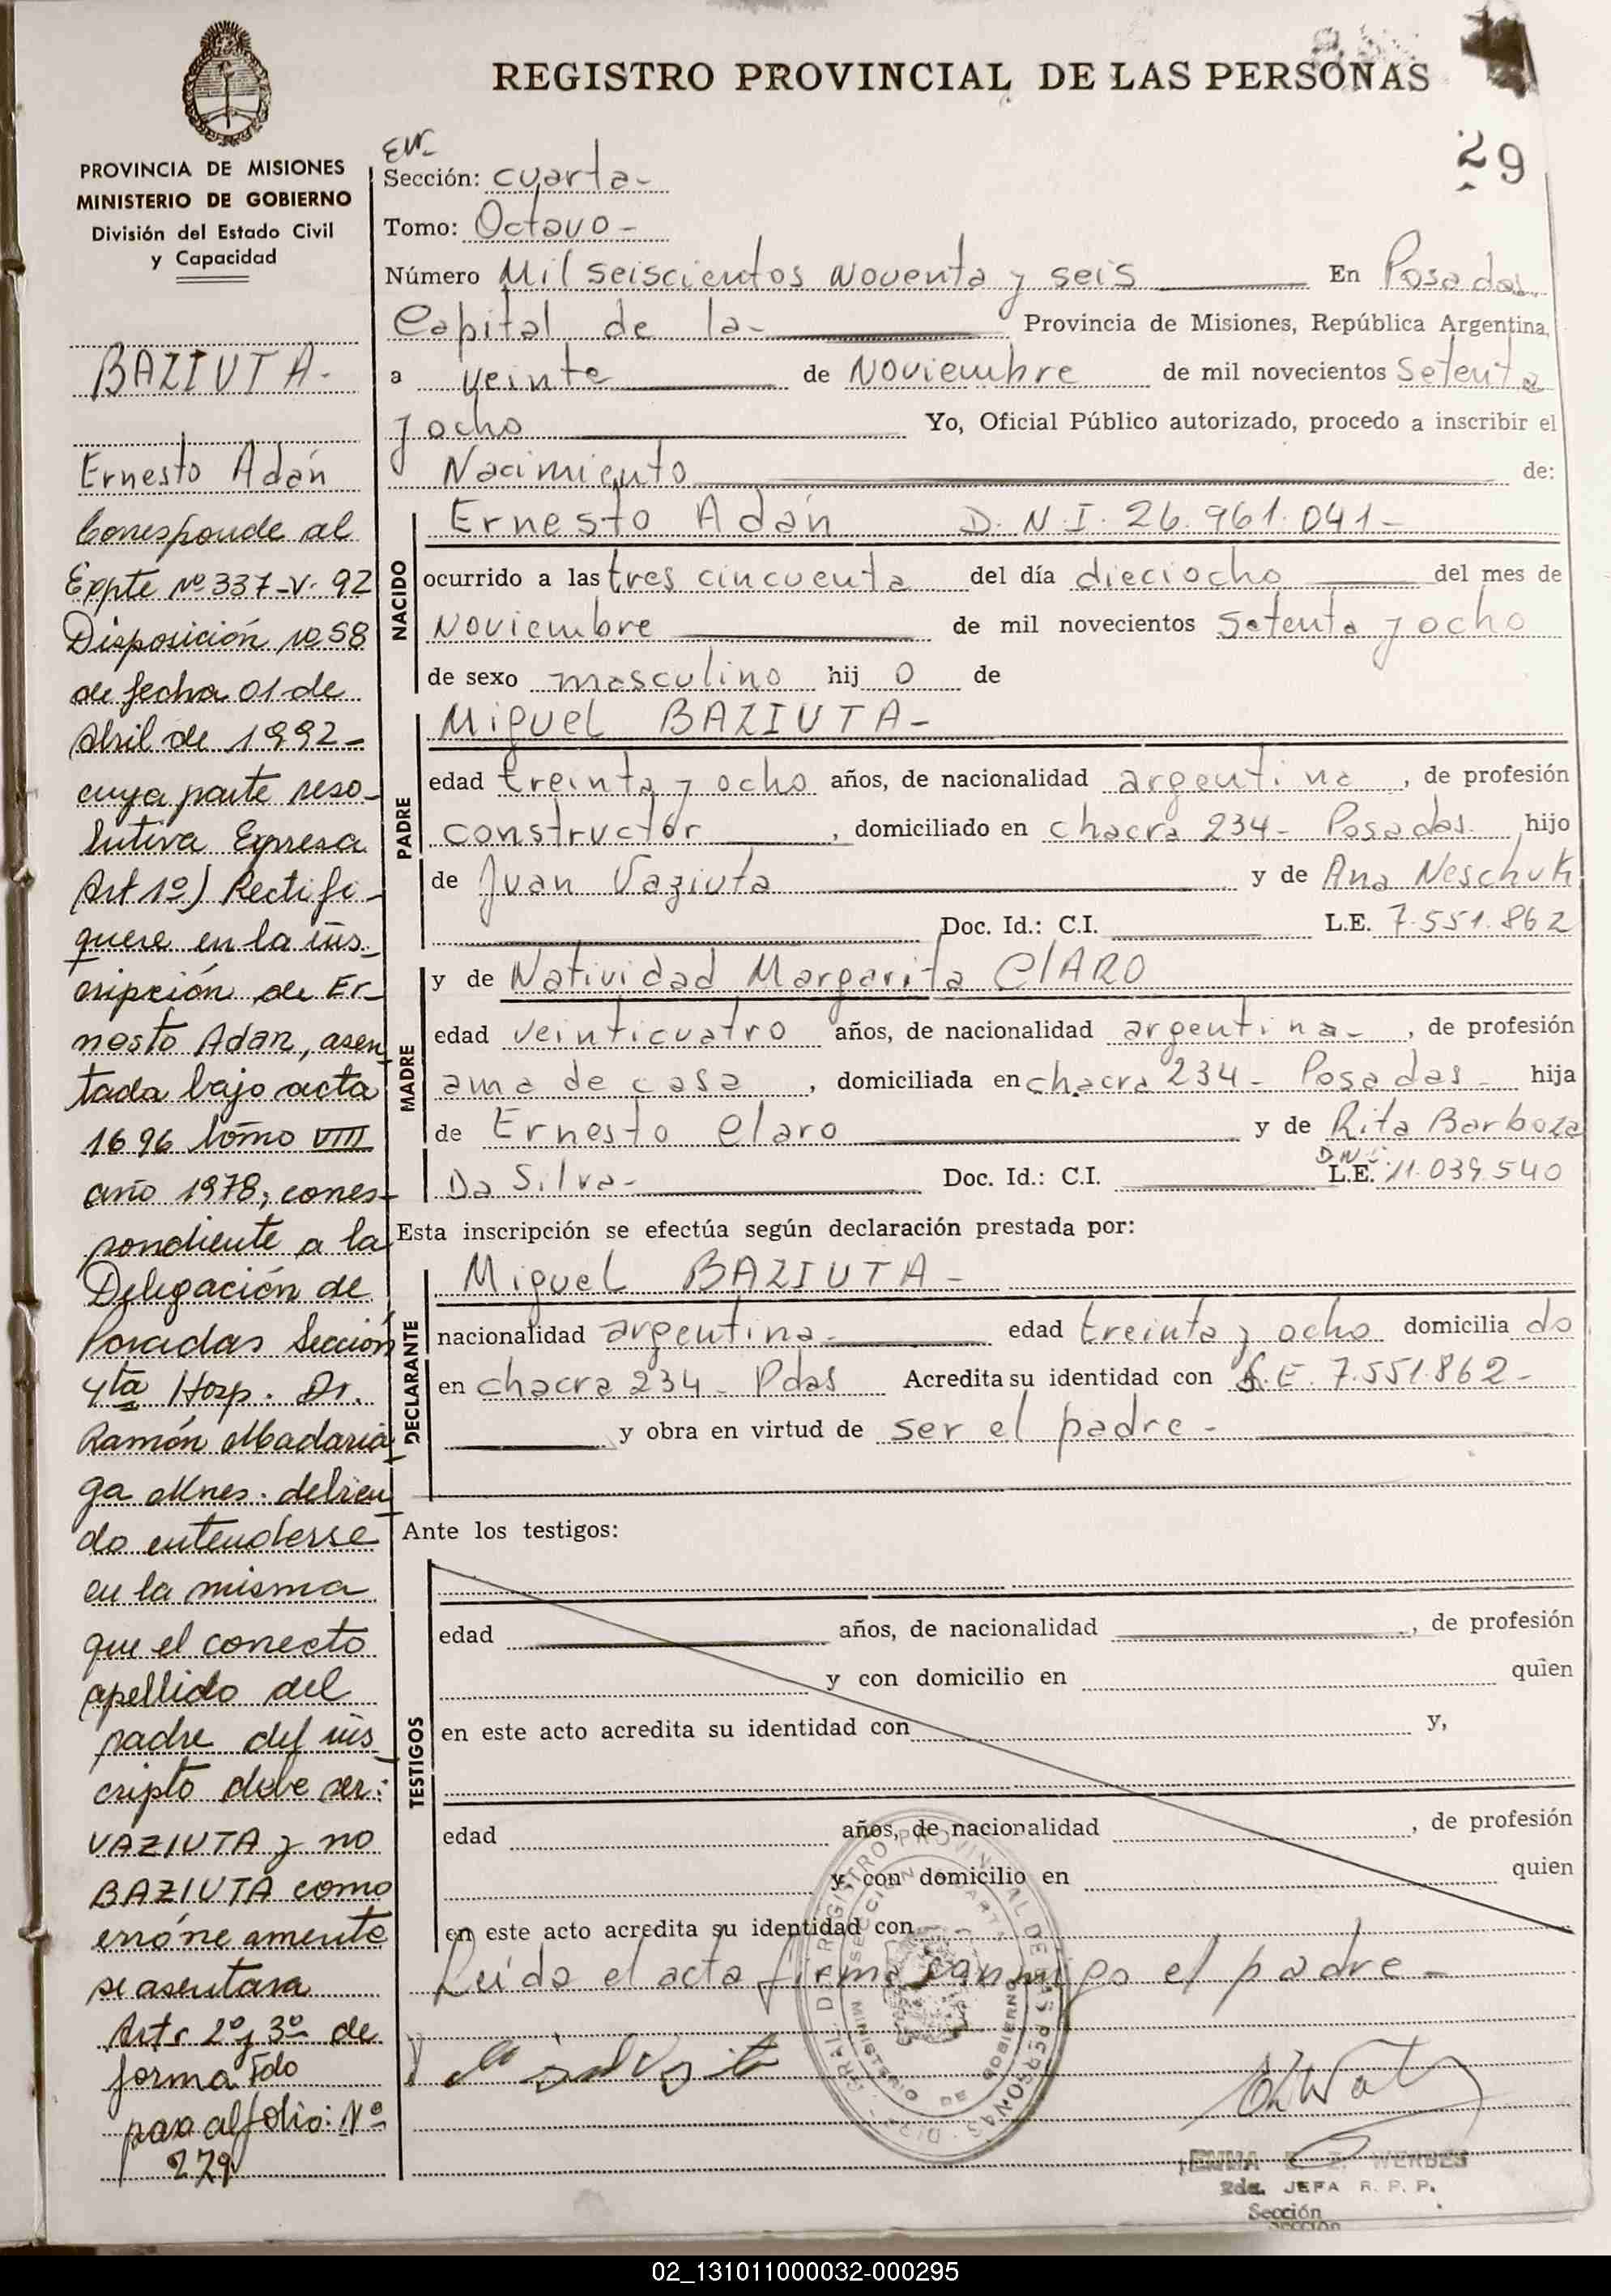 REGISTRO PROVINCIAL DE LAS PERSONAS
29
PROVINCIA DE MISIONES
MINISTERIO DE GOBIERNO
División del Estado Civil
y Capacidad
BAZIUTA-
Ernesto Adán
Corresponde al
Expte Nº 337-V-92
Disposición 1058
de fecha 01 de
Abril de 1992-
cuya parte reso-
lutiva Expresa
Art 1º) Rectifi-
quese en la ins-
cripción de Er-
nesto Adan, asen
tada bajo acta
1696 tomo VIII
año 1978, corres-
pondiente a la
Delegación de
Posadas Sección
4ta Hosp. Dr.
Ramón Madaria
ga Mnes. debien
do entenderse
en la misma
que el correcto
apellido del
padre del ins
cripto debe ser:
VAZIUTA y no
BAZIUTA como
erróneamente
se asentara
Arts 2º y 3º de
forma Fdo
pasa al folio: Nº
279
Sección: cuarta-
Tomo: Octavo-
Número Mil seiscientos noventa y seis En Posadas
Capital de la- Provincia de Misiones, República Argentina,
a veinte de Noviembre de mil novecientos setenta
y ocho Yo, Oficial Público autorizado, procedo a inscribir el
Nacimiento de:
NACIDO
Ernesto Adán D.N.I. 26.961.041-
ocurrido a las tres cincuenta del día dieciocho del mes de
Noviembre de mil novecientos setenta y ocho
de sexo masculino hij o de
PADRE
Miguel BAZIUTA-
edad treinta y ocho años, de nacionalidad argentina, de profesión
constructor, domiciliado en chacra 234- Posadas. hijo
de Juan Vaziuta y de Ana Neschuk
Doc. Id.: C.I. L.E. 7.551.862
MADRE
y de Natividad Margarita ClARO
edad veinticuatro años, de nacionalidad argentina-, de profesión
ama de casa, domiciliada en chacra 234- Posadas- hija
de Ernesto Claro y de Rita Barboza
Da Silva- Doc. Id.: C.I. D.N.I. L.E. 11.039.540
Esta inscripción se efectúa según declaración prestada por:
DECLARANTE
Miguel BAZIUTA-
nacionalidad argentina- edad treinta y ocho domicilia do
en chacra 234- Pdas Acredita su identidad con L.E. 7.551.862-
y obra en virtud de ser el padre-
Ante los testigos:
TESTIGOS
edad años, de nacionalidad , de profesión
y con domicilio en quien
en este acto acredita su identidad con y,
edad años, de nacionalidad , de profesión
y con domicilio en quien
en este acto acredita su identidad con
Leída el acta firma conmigo el padre-
REGISTRO PROVINCIAL DE LAS PERSONAS
SECCION CUARTA
MINISTERIO DE GOBIERNO
2da. JEFA R. P. P.
Sección
02_131011000032-000295